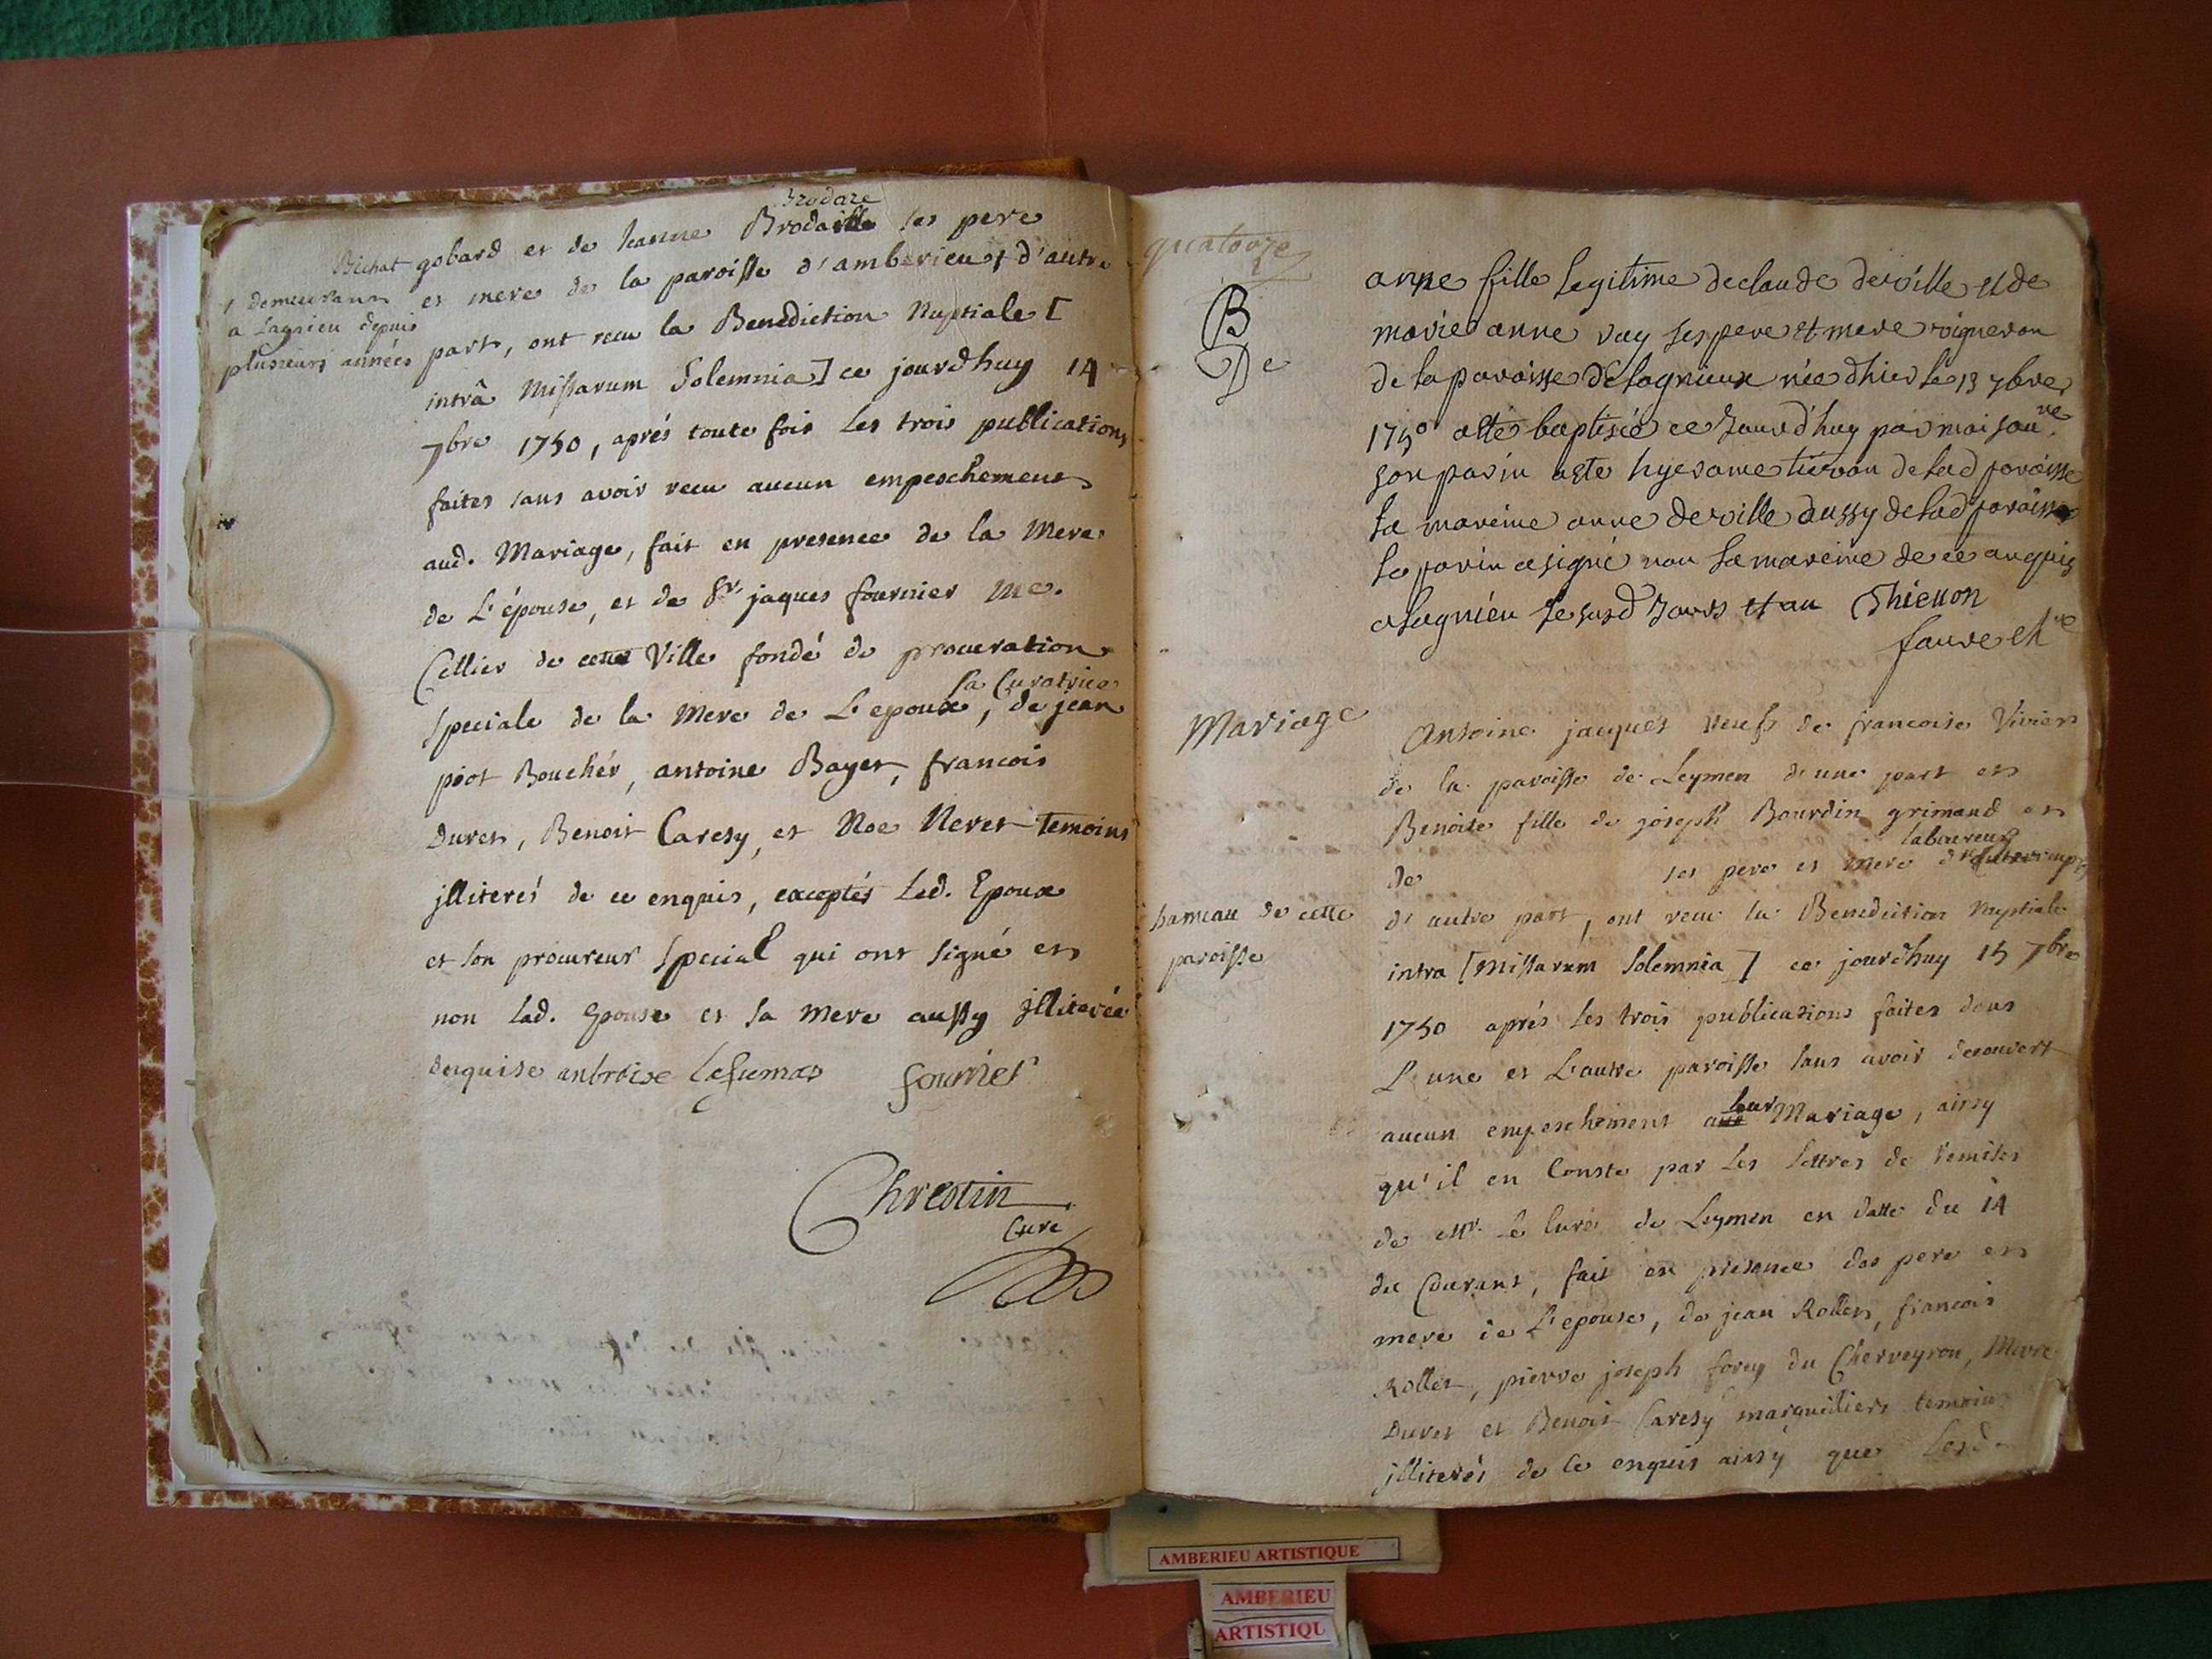 Brodare
Bichat gobard et de Jeanne Brodaille ses pere
et mere de la paroisse d'amberieu d'autre
/ demeurant
a Lagnieu depuis
plusieurs années
part, ont recu la Benediction Nuptiale [
intrâ Missarum Solemnia] ce jourdhuy 14
7bre 1750, aprés toute fois les trois publications
faites sans avoir recu aucun empeschement
aud. Mariage, fait en presence de la Mere
de L'épouse, et de Sr. jaques fournier Me.
Cellier de cette Ville fondé de procuration
la Curatrice
speciale de la Mere de L'epoux, de jean
piot Bouchér, antoine Bayet, francois
Duret, Benoit Caresy, et Noe Neret temoins
jlliterés de ce enquis, exceptés led. Epoux
et son procureur special qui ont signé et
non lad. Epouse et sa mere aussy jlliterée
enquise anbroise fournier
Chrestin
Curé
quatorze
B
De
anne fille legitime de claude deville et de
marie anne ses pere et mere vigneron
de la paroisse de lagnieux née dhier le 13 7bre
1750 a été baptisée ce jourd'huy par moi
son parin a été hyerome de lad paroisse
la mareine anne deville aussy de lad paroisse
le parin a signé non la mareine de ce enquis
a lagnieu le susd jours et an Thienon
faure
Mariage
Antoine jaquet veuf de francoise Vivier
de la paroisse de Leymen d'une part et
Benoite fille de joseph Bourdin grimaud et
laboureur
de ses pere et mere
hameau de cette
paroisse
d'autre part, ont recu la Benediction Nuptiale
intra [Missarum Solemnia] ce jourdhuy 15 7bre
1750 aprés les trois publications faites dans
L'une et L'autre paroisse sans avoir decouvert
aucun empeschement a leur Mariage, ainsy
qu'il en Conste par les lettres de remises
de Mr. le Curé de Leymen en datte du 14
du Courant, fait en presence des pere et
mere de L'epouse, de jean Rollet, francois
Rollet, pierre joseph forey du Cherveyron,
Duret et Benoit Caresy marguilliers temoins
jlliterés de ce enquis ainsy que Lesd.
AMBERIEU ARTISTIQUE
AMBERIEU
ARTISTIQU